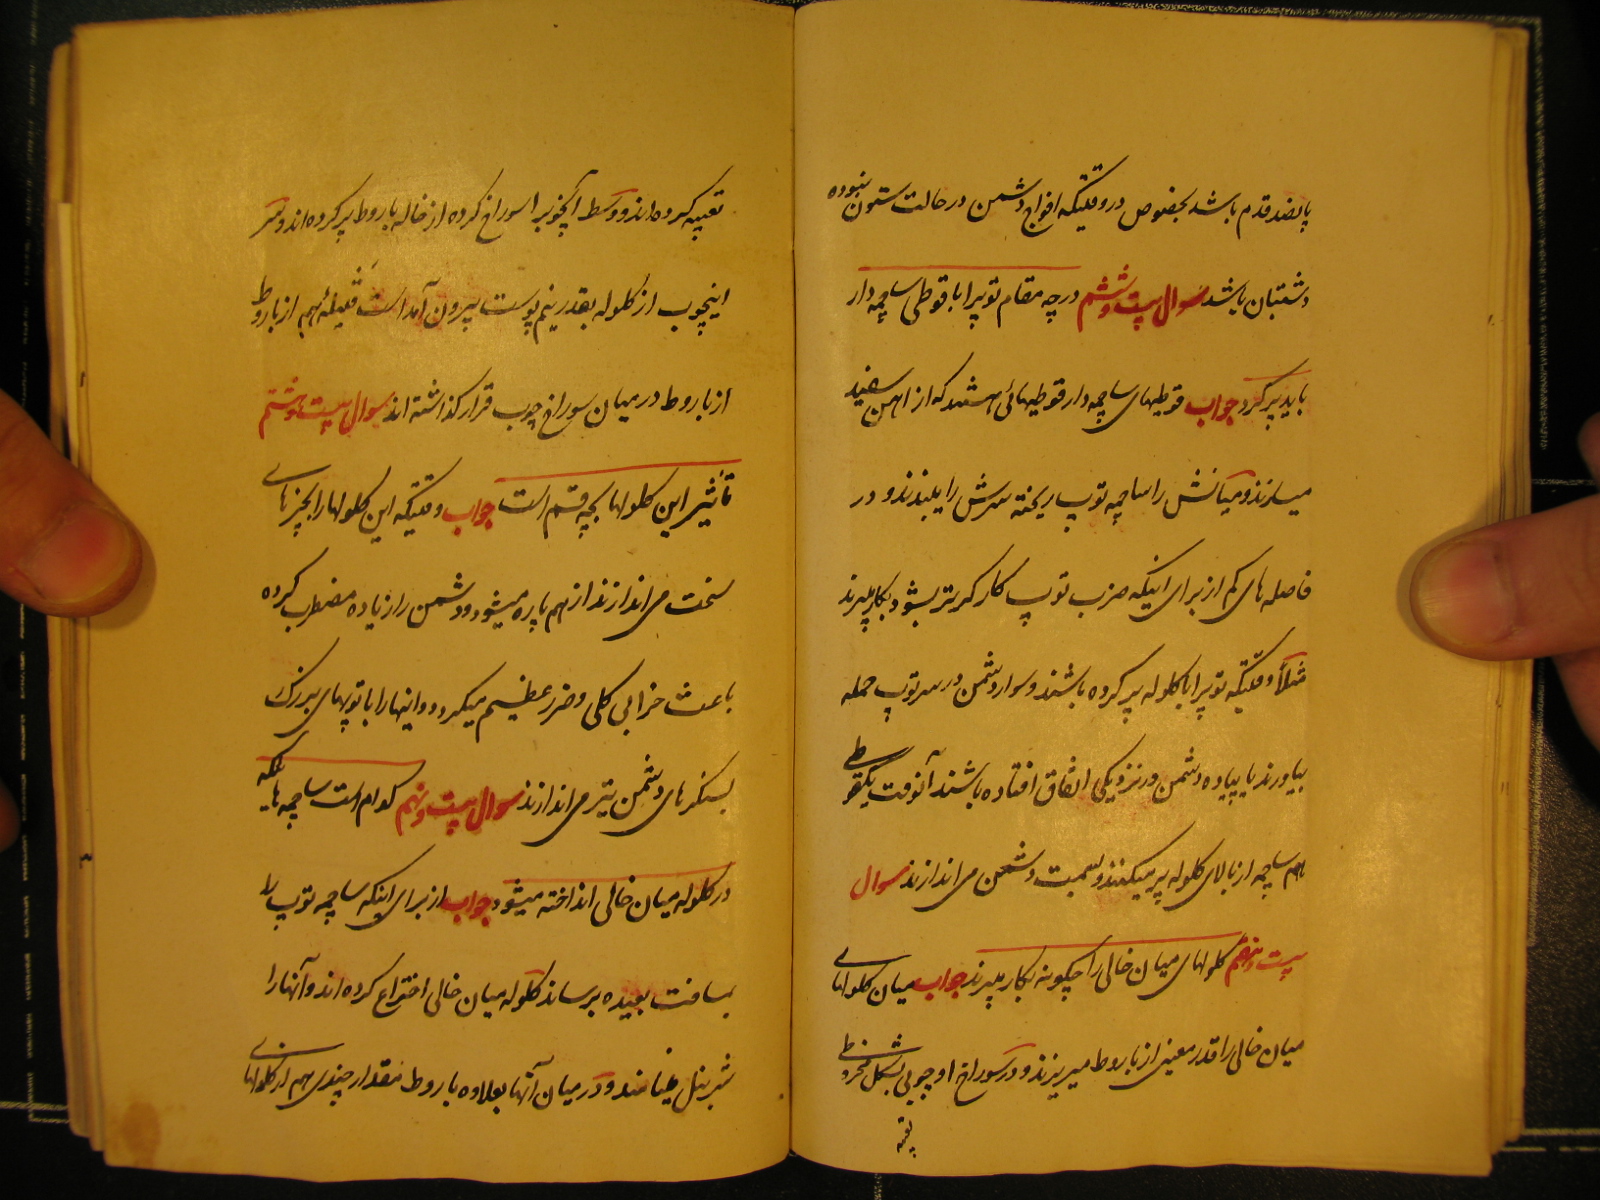 پانصد قدم باشد بخصوص در وقتیکه افواج دشمن در حالت ستون نبوده
دشتبان باشد سوال بیست و ششم در چه مقام توپرا با قوطی ساچمه دار
باید پر کرد جواب قوطیهای ساچمه دار قوطیهائی هستند که از اهن سفید
میسازند و میانش را ساچمه توپ ریخته سرش را یبندند و در
فاصله های کم از برای اینکه ضرب توپ کارگرتر بشود بکار میبرند
مثلاً وقتیکه توپرا با کلوله پر کرده باشند و سوار دشمن در سر توپ حمله
بیاورند یا پیاده دشمن در نزدیکی اتفاق افتاده باشند آنوقت یکقوطی
هم ساچمه از بالای کلوله پر میکنند و بسمت دشمن می اندازند سوال
بیست و هفتم کلولهای میان خالی را چکونه بکار میبرند جواب میان کلولهای
میان خالی را قدر معینی از باروط میریزند و در سوراخ او چوبی بشکل مخروطی
تعبیه
تعبیه کرده اند و وسط آنچوبرا سوراخ کرده از خاله باروط پر کرده اند و سر
اینچوب از کلوله بقدر نیم پوست بیرون آمده است فتیلهٔ هم از باروط
از باروط در میان سوراخ چوب قرار کذاشته اند سوال بیست و هشتم
تأثیر این کلولها بچه قسم است جواب وقتیکه این کلولها را بچیزهای
سخت می اندازند از هم پاره میشود و دشمن را زیاده مضطرب کرده
باعث خرابی کلی و ضرر عظیم میکردد و اینها را با توپهای بزرک
بسنکرهای دشمن نیز می اندازند سوال بیست و نهم کدام است ساچمه هائیکه
در کلوله میان خالی انداخته میشود جواب از برای اینکه ساچمه توپ را
بمسافت بعیده برساند کلوله میان خالی اختراع کرده اند و آنها را
شربنل مینامند و در میان آنها بعلاوه باروط مقدار چندی هم از کلولهای